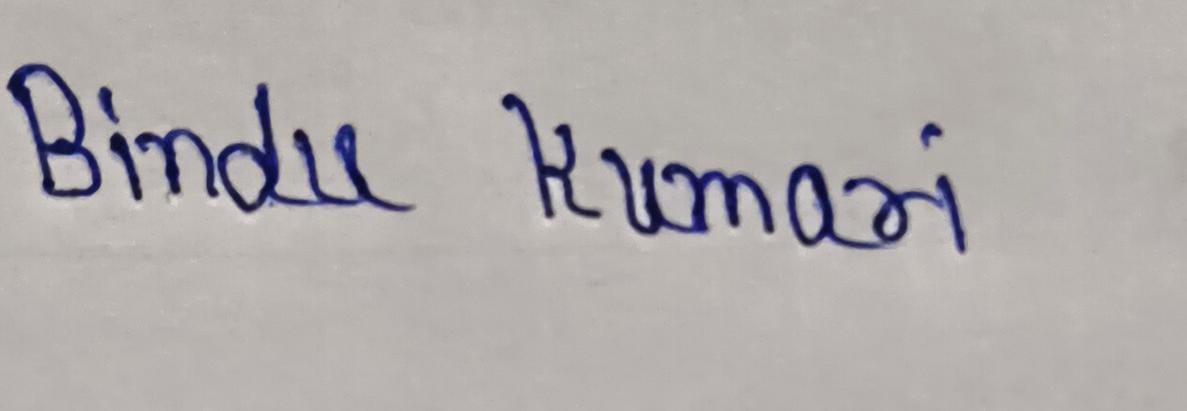 Bindu Kumari